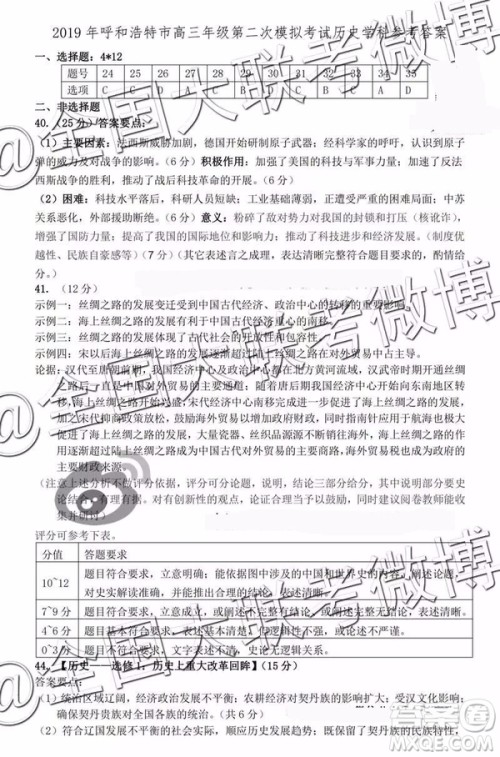 2019 年呼和浩特市高三年级第二次模拟考试历史学科参考答案
一、选择题：4*12
题号 24 25 26 27 28 29 30 31 32 33 34 35
选项 C C D A C D A C D
二、非选择题
40.（25 分）答案要点：
（1）主要因素：法西斯威胁加剧，德国开始研制原子武器；经科学家的呼吁，认识到原子
弹的威力及对战争的影响。（6 分）积极作用：加强了美国的科技与军事力量；加速了反法
西斯战争的胜利，推动了战后科技革命的开展。（6 分）
（2）困难：科技水平落后，科研人员短缺；工业基础薄弱，正遭受严重的自然灾害；中苏
关系恶化，外部援助断绝。（6 分）意义：粉碎了敌对势力对我国的封锁和打压（核讹诈），
增强了国防力量；提高了我国的国际地位和影响力；推动了科技进步与发展。（制度优
越性、民族自豪感等）（7 分）（其它表述，言之成理，表述清晰完整，可酌情给
分。）
41.（12 分）
示例一：丝绸之路的发展变迁受到中国古代经济、政治中心的转移的重要影响。
示例二：海上丝绸之路的发展有利于中国古代经济重心的南移。
示例三：丝绸之路的发展体现了古代社会的开放性和包容性。
示例四：宋以后海上丝绸之路的发展在对外贸易中占主导。
论据：汉代至唐朝前期，我国经济中心和政治中心都在北方黄河流域，汉武帝时期开通了丝
绸之路后中成为对外贸易的主要通道。随着唐后期我国经济中心开始向东南地区转
移，海上丝绸之路得到发展。南宋时经济中心南移完成，海上丝绸之路的发展兴盛，
加之宋代抑商政策的松动，政府鼓励发展海外贸易以增加收入，同时指南针应用于航
海也促进了海上丝绸之路的发展，大量瓷器、丝绸等外销，海外贸易收入成为了政府
的主要财政来源。
（注意以上述分析不做评分依据，评分可分论题，说明，结论三部分给分，其中说明部分要史
论结合，有理有据。对于有独到见解的可以酌情给分，有争议的，建议阅卷教师能收
集并研讨）
评分可参考下表。
分值 答题要求
10~12 题目符合要求，立意明确；能依据图中涉及的中国和世界史的内容，阐述论题，
对史实解读准确，并进行概括和总结；表述清晰。
7~9 分 题目符合要求，立意明确；有史实依据并进行阐述；表述清楚。
4~6 分 题目基本符合要求，立意基本准确；有史实表述；表述较清楚。
0~3 分 题目不符合要求，立意不明确；史论无逻辑关系；表述欠清楚。
44.【历史——选修 1：历史上重大改革回眸】（15 分）
答案要点：
（1）统治区域辽阔，经济发展不平衡；农耕经济对契丹族的影响扩大；受汉文化影响大；
确保契丹贵族对全国各族的统治。（共 6 分）
（2）符合辽国发展不平衡的社会实际，顺应历史发展趋势；既保留了契丹族的民族特性，
@全国大联考微博
@全国大联考微博